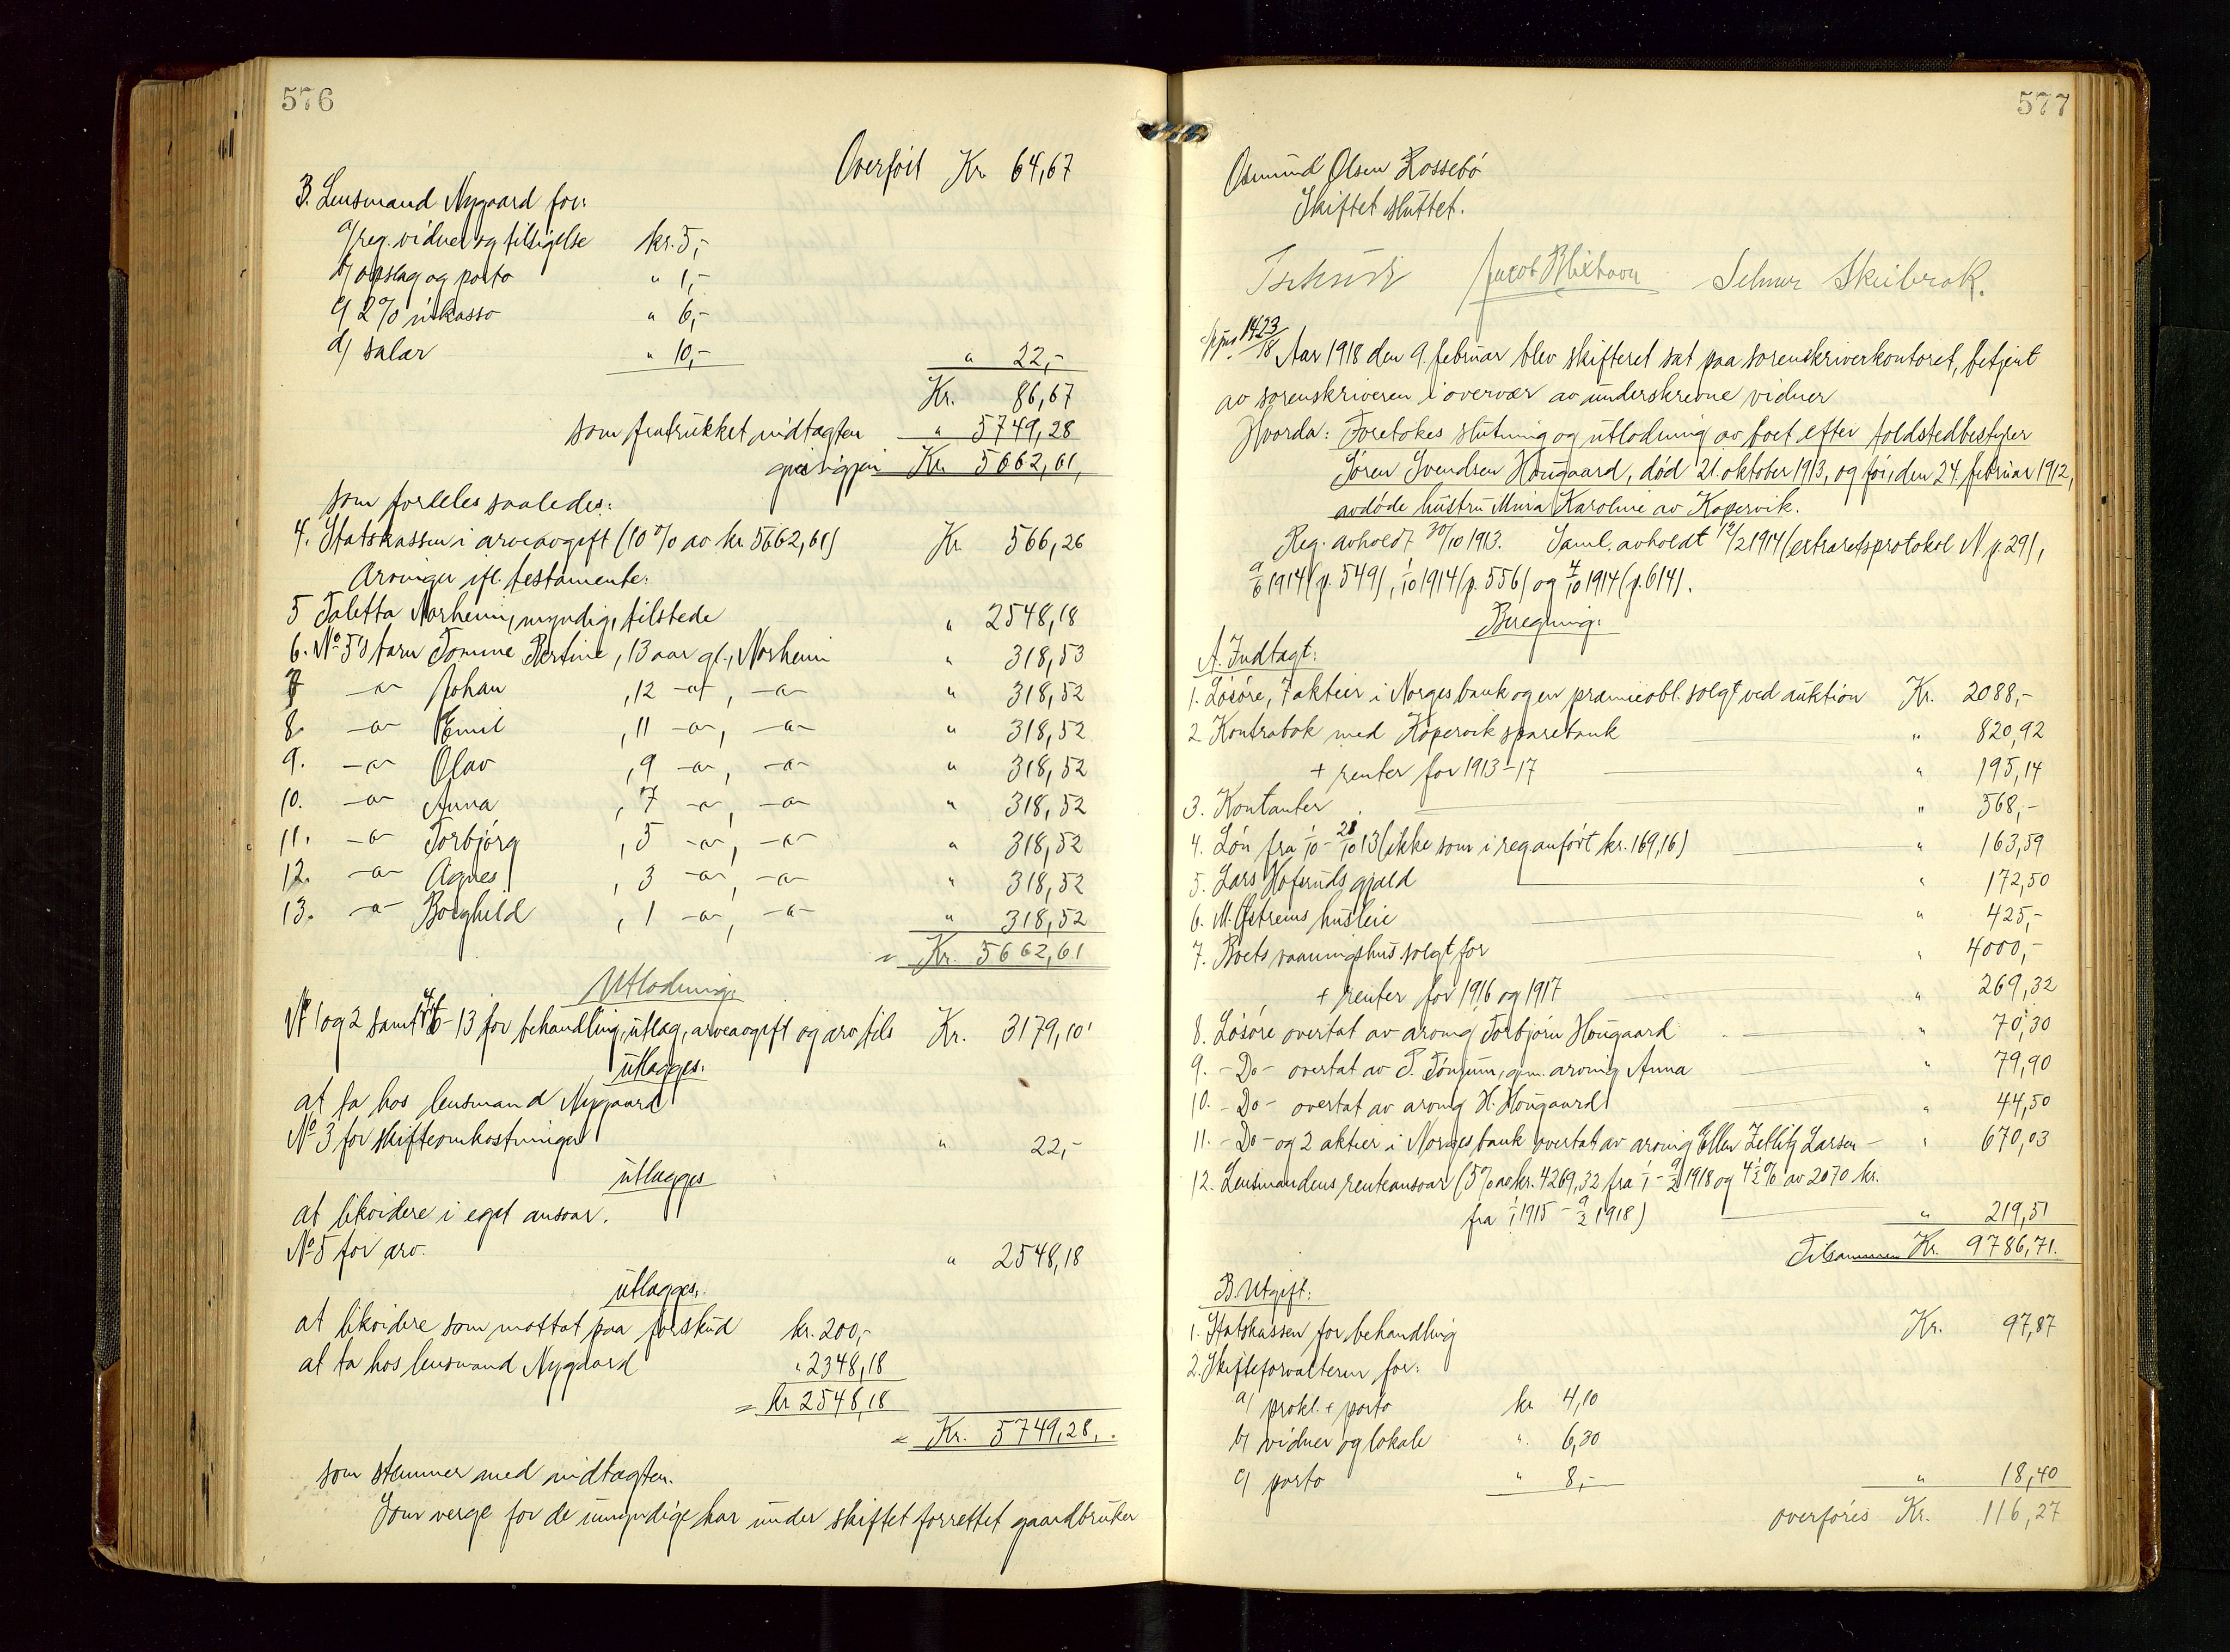 576
Overført Kr. 64,67
3. Lensmand Nygaard for:
a/ reg. vidner og tilsigelse kr. 5,-
b/ opslag og porto " 1,-
c/ 2% inkasso " 6,-
d/ salær " 10,- " 22,-
Kr. 86,67
som fratrukket indtægten " 5749,28
Kr. 5662,61
som fordeles saaledes:
4. Statskassen i arveavgift (10% av kr. 5662,61) Kr. 566,26
Arvinger ifl. testamente:
5 Taletta Norheim, myndig, tilstede " 2548,18
6. No 5's barn Tomine Bertine, 13 aar gl., Norheim " 318,53
7 -a- Johan , 12 -a-, -a- " 318,52
8. -a- Emil , 11 -a-, -a- " 318,52
9. -a- Olav , 9 -a-, -a- " 318,52
10. -a- Anna , 7 -a-, -a- " 318,52
11. -a- Torbjørg , 5 -a-, -a- " 318,52
12. -a- Agnes , 3 -a-, -a- " 318,52
13. -a- Borghild , 1 -a-, -a- " 318,52
= Kr. 5662,61
Utlodning:
No 1 og 2 samt 4, 6-13 for behandling, utlæg, arveavgift og arv, tils Kr. 3179,10
utlægges:
at ta hos lensmand Nygaard
No 3 for skifteomkostninger " 22,-
utlægges
at likvidere i eget ansvar.
No 5 for arv. " 2548,18
utlægges:
at likvidere som mottat paa forskud kr. 200,-
at ta hos lensmand Nygaard " 2348,18
= kr 2548,18
= Kr. 5749,28.
som stemmer med indtægten.
Som verge for de umyndige har under skiftet forrettet gaardbruker
577
Osmund Olsen Rossebø
Skiftet sluttet.
Jacob Blixhavn Selmer Skeibrok.
1423/18 Aar 1918 den 9. februar blev skifteret sat paa sorenskriverkontoret, betjent
av sorenskriveren i overvær av underskrevne vidner
Hvorda: Foretokes slutning og utlodning av boet efter toldstedbestyrer
Søren Svendsen Hougaard, død 21. oktober 1913, og før, den 24. februar 1912,
avdøde hustru Maria Karoline av Kopervik.
Reg. avholdt 30/10 1913. Saml. avholdt 12/2 1914 (extraretsprotokol N p. 291,
9/6 1914 (p. 549), 1/10 1914 (p. 556) og 4/10 1914 (p. 614).
Beregning:
A. Indtægt:
1. Løsøre, 7 aktier i Norges bank og en præmieobl. solgt ved auktion Kr. 2088,-
2 Kontrabok med Kopervik sparebank " 820,92
+ renter for 1913-17 " 195,14
3. Kontanter " 568,-
4. Løn fra 1/10 - 21/10 13 (ikke som i reg anført kr. 169,16) " 163,59
5. Lars gjæld " 172,50
6. M. Østreims husleie " 425,-
7. Boets vaaningshus solgt for " 4000,-
+ renter for 1916 og 1917 " 269,32
8. Løsøre overtat av arving Torbjørn Hougaard " 70,30
9. -Do- overtat av gm. arving Anna " 79,90
10. -Do- overtat av arving H. Hougaard " 44,50
11. -Do- og 2 aktier i Norges bank overtat av arving Ellen Zetlitz Larsen - " 670,03
12. Lensmandens renteansvar (5% av kr. 4269,32 fra 1/1 - 9/2 1918 og 4 1/2 % av 2070 kr.
fra 1/1 1915 - 9/2 1918) " 219,51
Tilsammen Kr. 9786,71.
B. Utgift:
1. Statskassen for behandling Kr. 97,87
2. Skifteforvalteren for:
a/ prokl. + porto kr 4,10
b/ vidner og lokale " 6,30
c/ porto " 8,- " 18,40
overføres Kr. 116,27